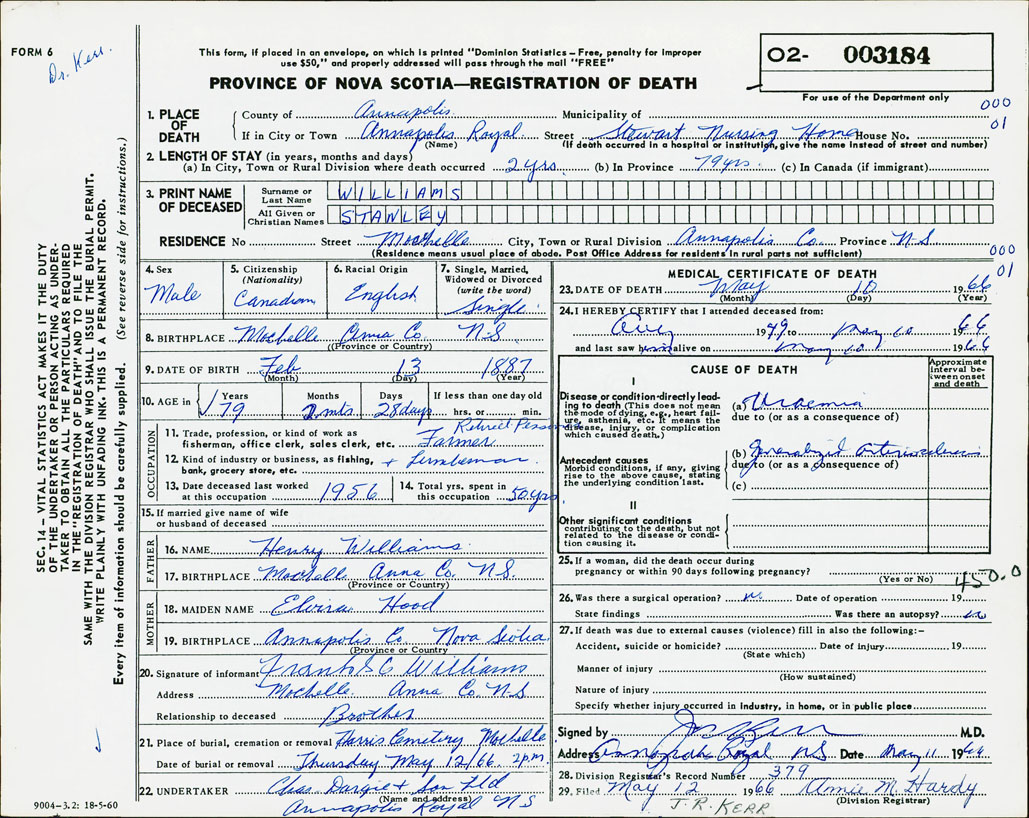 FORM 6
Dr. Kerr.
This form, if placed in an envelope, on which is printed "Dominion Statistics – Free, penalty for improper
use $50," and properly addressed will pass through the mail "FREE"
PROVINCE OF NOVA SCOTIA—REGISTRATION OF DEATH
O2- 003184
For use of the Department only
000
01
1. PLACE OF DEATH
County of Annapolis Municipality of
If in City or Town Annapolis Royal Street Stewart Nursing Home House No.
(Name) (If death occurred in a hospital or institution, give the name instead of street and number)
2. LENGTH OF STAY (in years, months and days)
(a) In City, Town or Rural Division where death occurred 2 yrs. (b) In Province 79 yrs. (c) In Canada (if immigrant)
3. PRINT NAME OF DECEASED
Surname or Last Name WILLIAMS
All Given or Christian Names STANLEY
RESIDENCE No Street Mochelle City, Town or Rural Division Annapolis Co. Province N-S
(Residence means usual place of abode. Post Office Address for residents in rural parts not sufficient)
000
01
4. Sex
Male
5. Citizenship
(Nationality)
Canadian
6. Racial Origin
English
7. Single, Married,
Widowed or Divorced
(write the word)
Single
8. BIRTHPLACE Mochelle Anna Co. N-S
(Province or Country)
9. DATE OF BIRTH Feb 13 1887
(Month) (Day) (Year)
10. AGE in Years Months Days If less than one day old
79 2 mts 28 days hrs. or min.
OCCUPATION
11. Trade, profession, or kind of work as
fisherman, office clerk, sales clerk, etc. Farmer
12. Kind of industry or business, as fishing,
bank, grocery store, etc + Lumberman
13. Date deceased last worked
at this occupation 1956
14. Total yrs. spent in
this occupation 50 yrs
15. If married give name of wife
or husband of deceased
FATHER
16. NAME Henry Williams
17. BIRTHPLACE Mochelle Anna Co. N.S.
(Province or Country)
MOTHER
18. MAIDEN NAME Elvira Hood
19. BIRTHPLACE Annapolis Co Nova Scotia
(Province or Country)
20. Signature of informant Frank S C Williams
Address Mochelle Anna Co. N-S
Relationship to deceased Brother
21. Place of burial, cremation or removal Harris Cemetery Mochelle
Date of burial or removal Thursday May 12/66 2 p.m.
22. UNDERTAKER Chas. Dargie + Son Ltd
(Name and address)
Annapolis Royal N S
MEDICAL CERTIFICATE OF DEATH
23. DATE OF DEATH May 10 1966
(Month) (Day) (Year)
24. I HEREBY CERTIFY that I attended deceased from:
Aug 1949 to May 10 1966
and last saw him alive on May 10 1966
CAUSE OF DEATH
Approximate interval between onset and death
I
Disease or condition directly leading to death (This does not mean the mode of dying, e.g., heart failure, asthenia, etc. It means the disease, injury, or complication which caused death.)
(a) Uraemia
due to (or as a consequence of)
Antecedent causes
Morbid conditions, if any, giving rise to the above cause, stating the underlying condition last.
(b) Generalized Arteriosclerosis
due to (or as a consequence of)
(c)
II
Other significant conditions
contributing to the death, but not related to the disease or condition causing it.
25. If a woman, did the death occur during
pregnancy or within 90 days following pregnancy?
(Yes or No)
450.0
26. Was there a surgical operation? no Date of operation 19
State findings Was there an autopsy? no
27. If death was due to external causes (violence) fill in also the following:–
Accident, suicide or homicide? Date of injury 19
(State which)
Manner of injury
(How sustained)
Nature of injury
Specify whether injury occurred in industry, in home, or in public place
Signed by M.D.
Address Annapolis Royal NS Date May 11 1966
28. Division Registrar's Record Number 379
29. Filed May 12 1966 Annie M. Hardy
(Division Registrar)
J. R. KERR
SEC. 14 – VITAL STATISTICS ACT MAKES IT THE DUTY
OF THE UNDERTAKER OR PERSON ACTING AS UNDER-
TAKER TO OBTAIN ALL THE PARTICULARS REQUIRED
IN THE "REGISTRATION OF DEATH" AND TO FILE THE
SAME WITH THE DIVISION REGISTRAR WHO SHALL ISSUE THE BURIAL PERMIT.
WRITE PLAINLY WITH UNFADING INK. THIS IS A PERMANENT RECORD.
Every item of information should be carefully supplied. (See reverse side for instructions.)
9004-3.2: 18-5-60